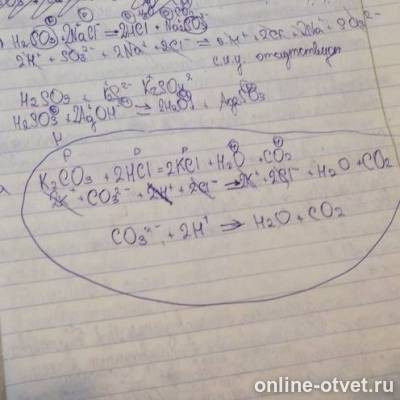 H₂SO₃ + 2NaCl ⇌ 2HCl + Na₂SO₃
2H⁺ + SO₃²⁻ + 2Na⁺ + 2Cl⁻ = 2H⁺ + 2Cl⁻ + 2Na⁺ + SO₃²⁻
с.и.у отсутствует
H₂SO₃ + K₂SO₄
H₂SO₃ + 2AgOH = 2H₂O + Ag₂SO₃
Н
Р Р Р
K₂CO₃ + 2HCl = 2KCl + H₂O + CO₂
2K⁺ + CO₃²⁻ + 2H⁺ + 2Cl⁻ → 2K⁺ + 2Cl⁻ + H₂O + CO₂
CO₃²⁻ + 2H⁺ → H₂O + CO₂
online-otvet.ru